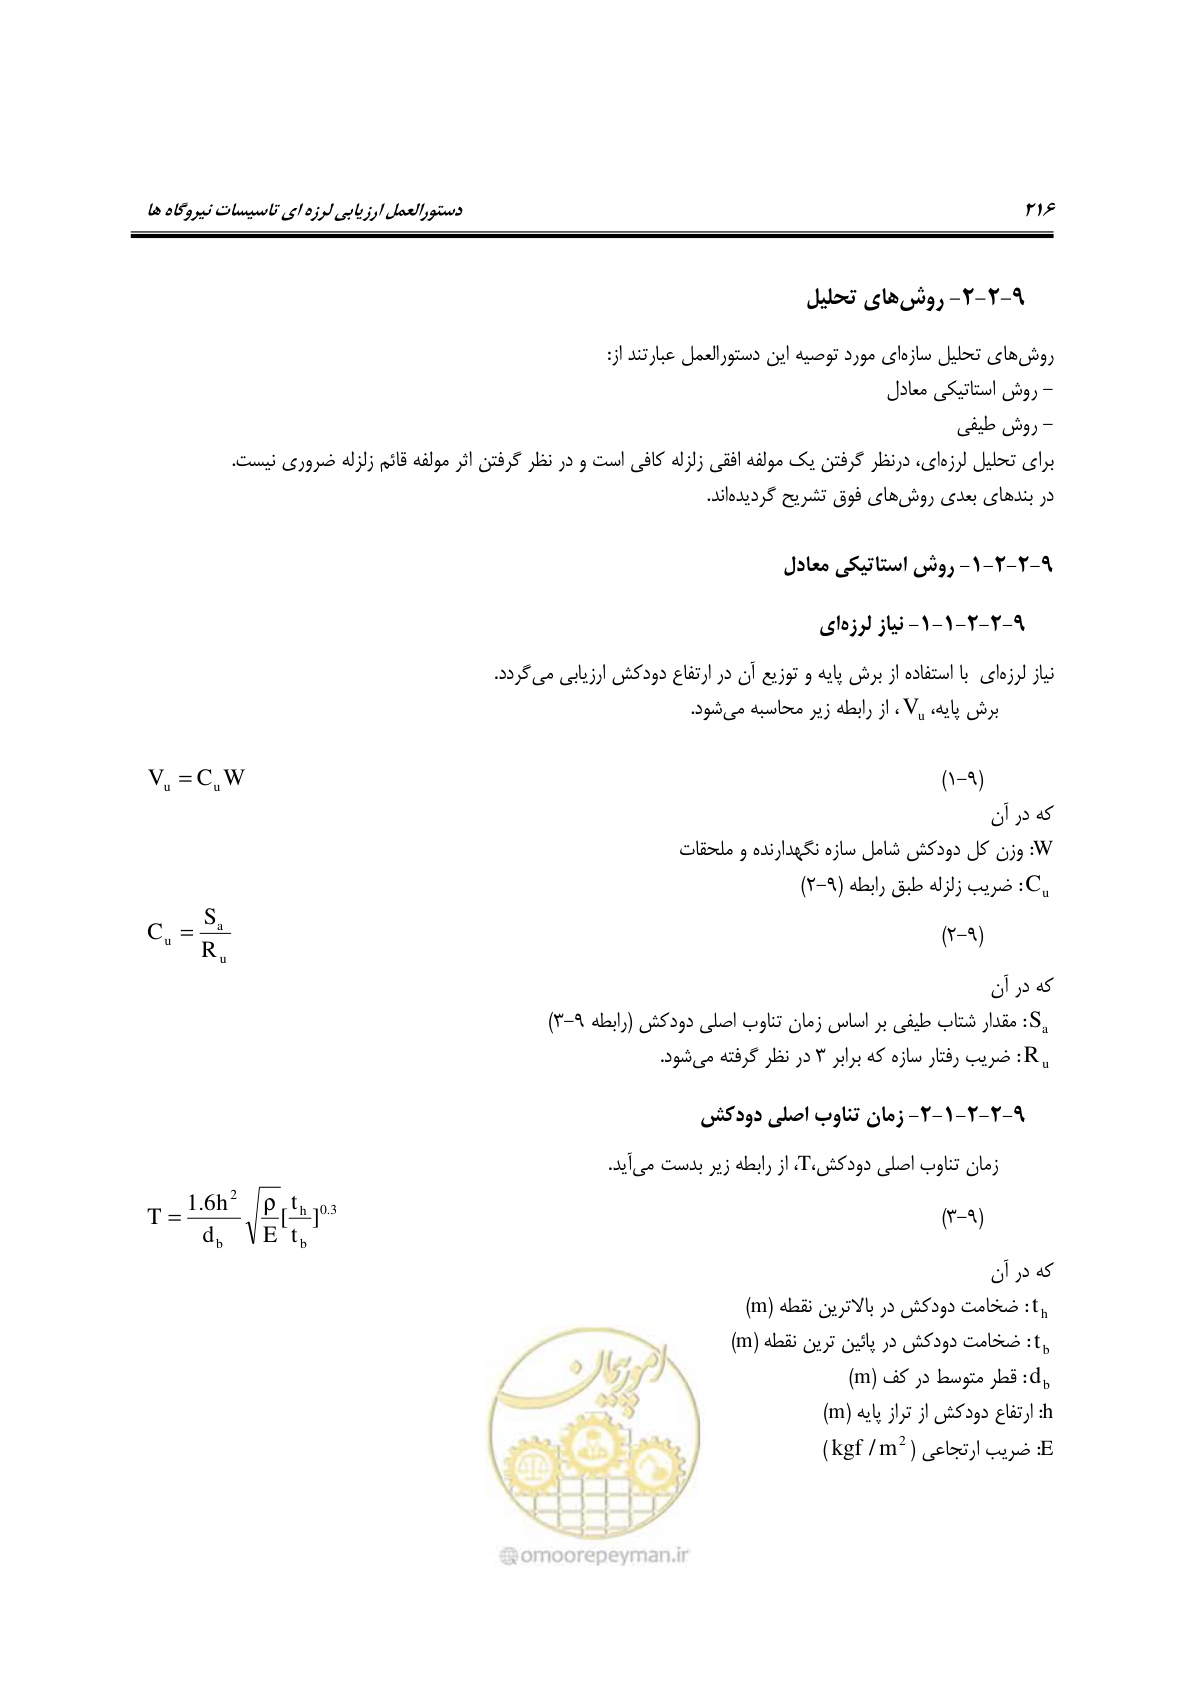 ۲۱۶ دستورالعمل ارزیابی لرزه ای تاسیسات نیروگاه ها
۹-۲-۲- روش‌های تحلیل
روش‌های تحلیل سازه‌ای مورد توصیه این دستورالعمل عبارتند از:
- روش استاتیکی معادل
- روش طیفی
برای تحلیل لرزه‌ای، درنظر گرفتن یک مولفه افقی زلزله کافی است و در نظر گرفتن اثر مولفه قائم زلزله ضروری نیست.
در بندهای بعدی روش‌های فوق تشریح گردیده‌اند.
۹-۲-۲-۱- روش استاتیکی معادل
۹-۲-۲-۱-۱- نیاز لرزه‌ای
نیاز لرزه‌ای با استفاده از برش پایه و توزیع آن در ارتفاع دودکش ارزیابی می‌گردد.
برش پایه، V_u ، از رابطه زیر محاسبه می‌شود.
(۹-۱) V_u = C_u W
که در آن
W: وزن کل دودکش شامل سازه نگهدارنده و ملحقات
C_u : ضریب زلزله طبق رابطه (۹-۲)
(۹-۲) C_u = S_a / R_u
که در آن
S_a : مقدار شتاب طیفی بر اساس زمان تناوب اصلی دودکش (رابطه ۹-۳)
R_u : ضریب رفتار سازه که برابر ۳ در نظر گرفته می‌شود.
۹-۲-۲-۱-۲- زمان تناوب اصلی دودکش
زمان تناوب اصلی دودکش،T، از رابطه زیر بدست می‌آید.
(۹-۳) T = 1.6h² / d_b √(ρ/E) [t_h / t_b]^0.3
که در آن
t_h : ضخامت دودکش در بالاترین نقطه (m)
t_b : ضخامت دودکش در پائین ترین نقطه (m)
d_b : قطر متوسط در کف (m)
h: ارتفاع دودکش از تراز پایه (m)
E: ضریب ارتجاعی (kgf / m²)
امور پیمان
@omoorepeyman.ir